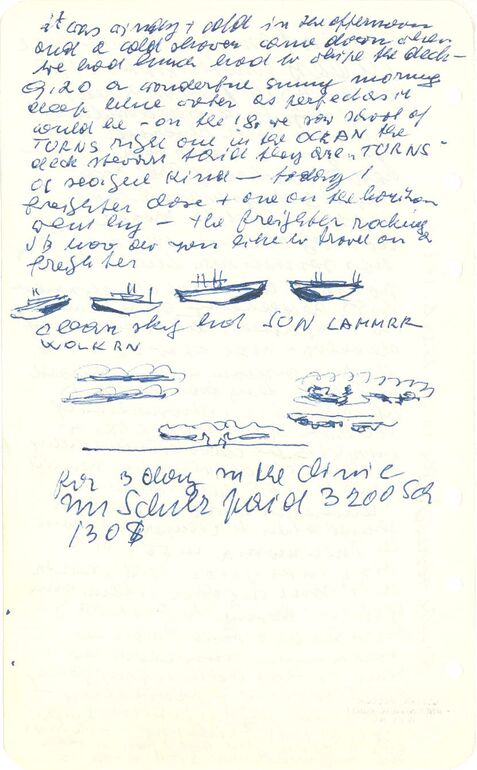 it was windy + cold in the afternoon
and a cold shower came down when
we had lunch had to wipe the deck –
9,20 a wonderful sunny morning
deep blue water as perfect as it
could be – on the 18 we saw school of
TURNS right out in the OCEAN the
deck steward said they are "TURNS"
of seagull kind – today 1
freighter close + one on the horizon
went by – the freighter rocking
JB how do you like to travel on a
freighter
ocean sky hot SUN LAMMER
WOLKEN
For 3 day in the clinic
Mr Schulz paid 3200 Sch
130$